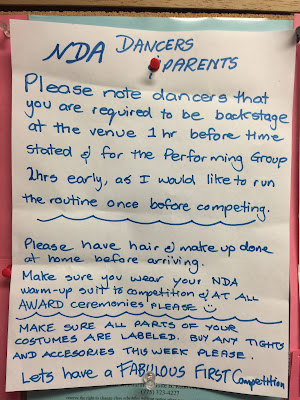 NDA DANCERS
& PARENTS
Please note dancers that
you are required to be backstage
at the venue 1 hr before time
stated & for the Performing Group
2hrs early, as I would like to run
the routine once before competing.
Please have hair & make up done
at home before arriving.
Make sure you wear your NDA
warm-up suit to competition & AT ALL
AWARD ceremonies PLEASE
MAKE SURE ALL PARTS OF YOUR
COSTUMES ARE LABELED. BUY ANY TIGHTS
AND ACCESORIES THIS WEEK PLEASE.
Lets have a FABULOUS FIRST Competition